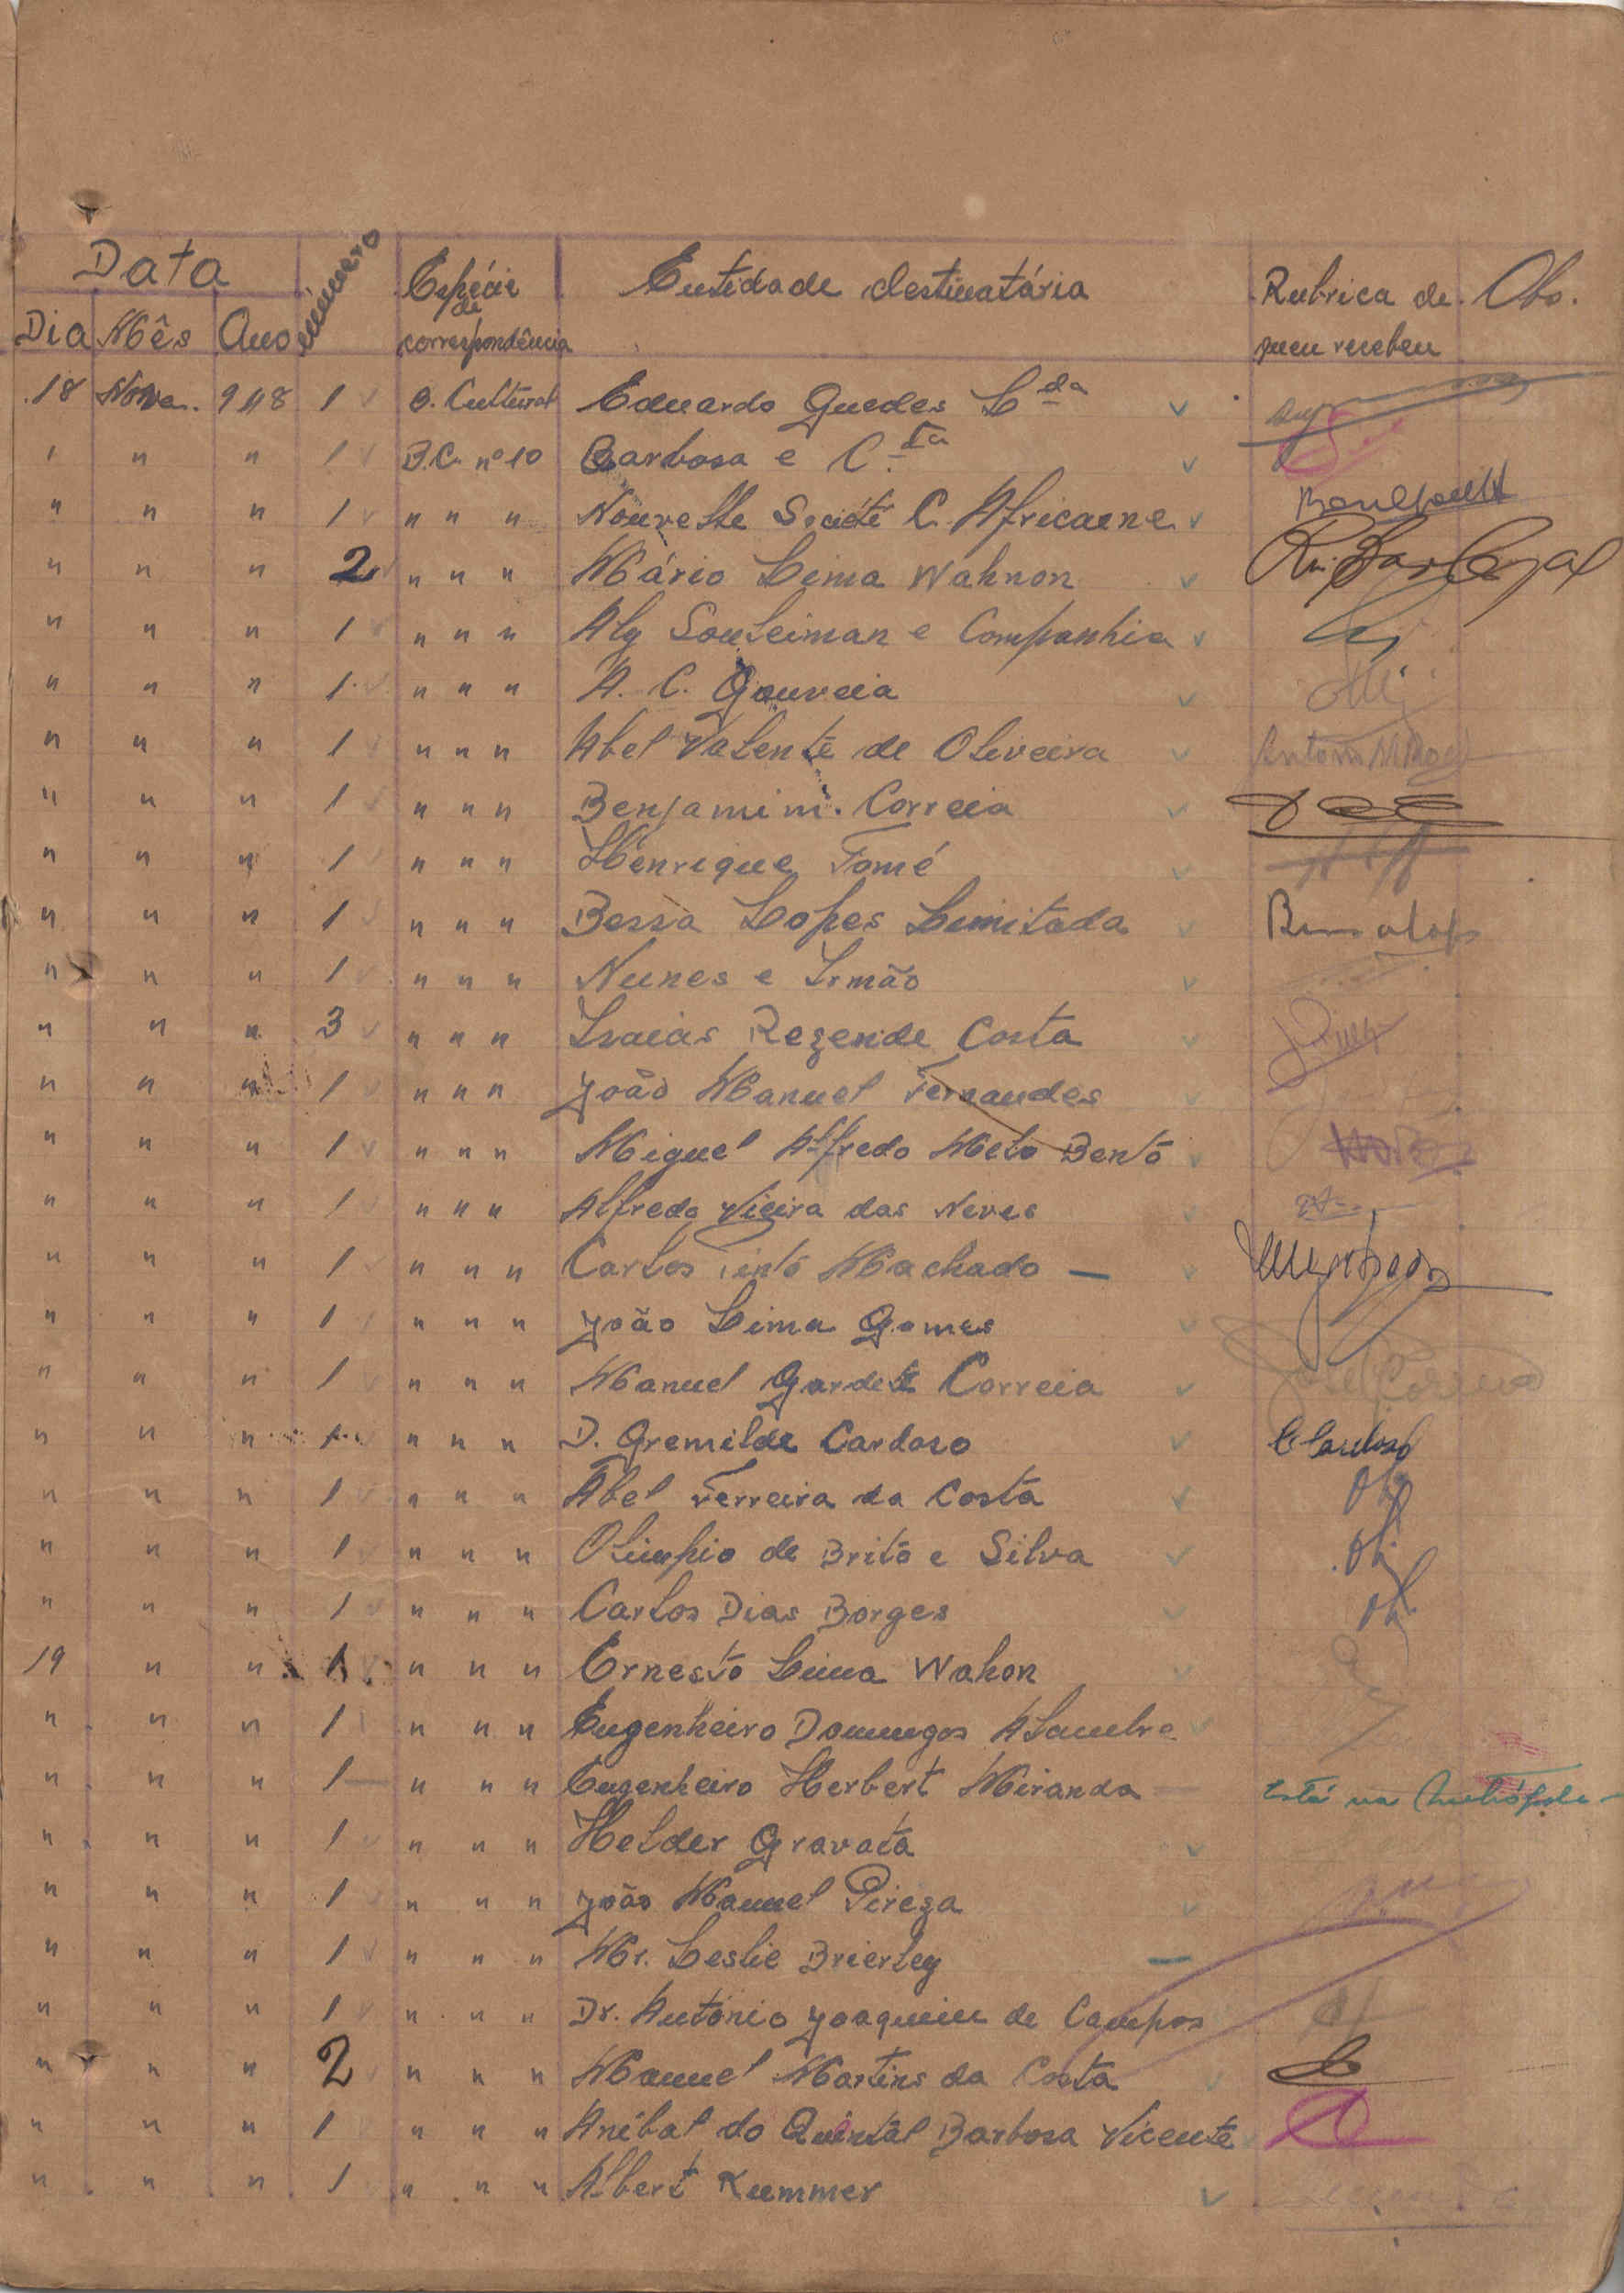 Data número Espécie de correspondência Entidade destinatária Rubrica de quem recebeu Obs.
Dia Mês Ano
18 Nove. 948 1 B. Cultural Eduardo Guedes L.da
" " " 1 B.C. nº 10 Barbosa e C.ta
" " " 1 " " " Nouvelle Société C. Africaene
" " " 2 " " " Mário Lima Wahnon
" " " 1 " " " Aly Souleiman e Companhia
" " " 1 " " " A. C. Gouveia
" " " 1 " " " Abel Valente de Oliveira
" " " 1 " " " Benjamim Correia
" " " 1 " " " Henrique Tomé
" " " 1 " " " Bessa Lopes Limitada
" " " 1 " " " Nunes e Irmão
" " " 3 " " " Isaias Rezende Costa
" " " 1 " " " João Manuel Fernandes
" " " 1 " " " Miguel Alfredo Melo Bento
" " " 1 " " " Alfredo Vieira das Neves
" " " 1 " " " Carlos Pinto Machado —
" " " 1 " " " João Lima Gomes
" " " 1 " " " Manuel Gardete Correia
" " " 1 " " " D. Gremilde Cardoso C Cardoso
" " " 1 " " " Abel Ferreira da Costa
" " " 1 " " " Olimpio de Brito e Silva
" " " 1 " " " Carlos Dias Borges
19 " " 1 " " " Ernesto Lima Wahon
" " " 1 " " " Engenheiro Domingos Alambre
" " " 1 " " " Engenheiro Herbert Miranda — Está na Metrópole
" " " 1 " " " Helder Gravata
" " " 1 " " " João Manuel Pireza
" " " 1 " " " Mr. Leslie Brierley —
" " " 1 " " " Dr. António Joaquim de Campos
" " " 2 " " " Manuel Martins da Costa
" " " 1 " " " Anibal do Quintal Barbosa Vicente
" " " 1 " " " Albert Kummer